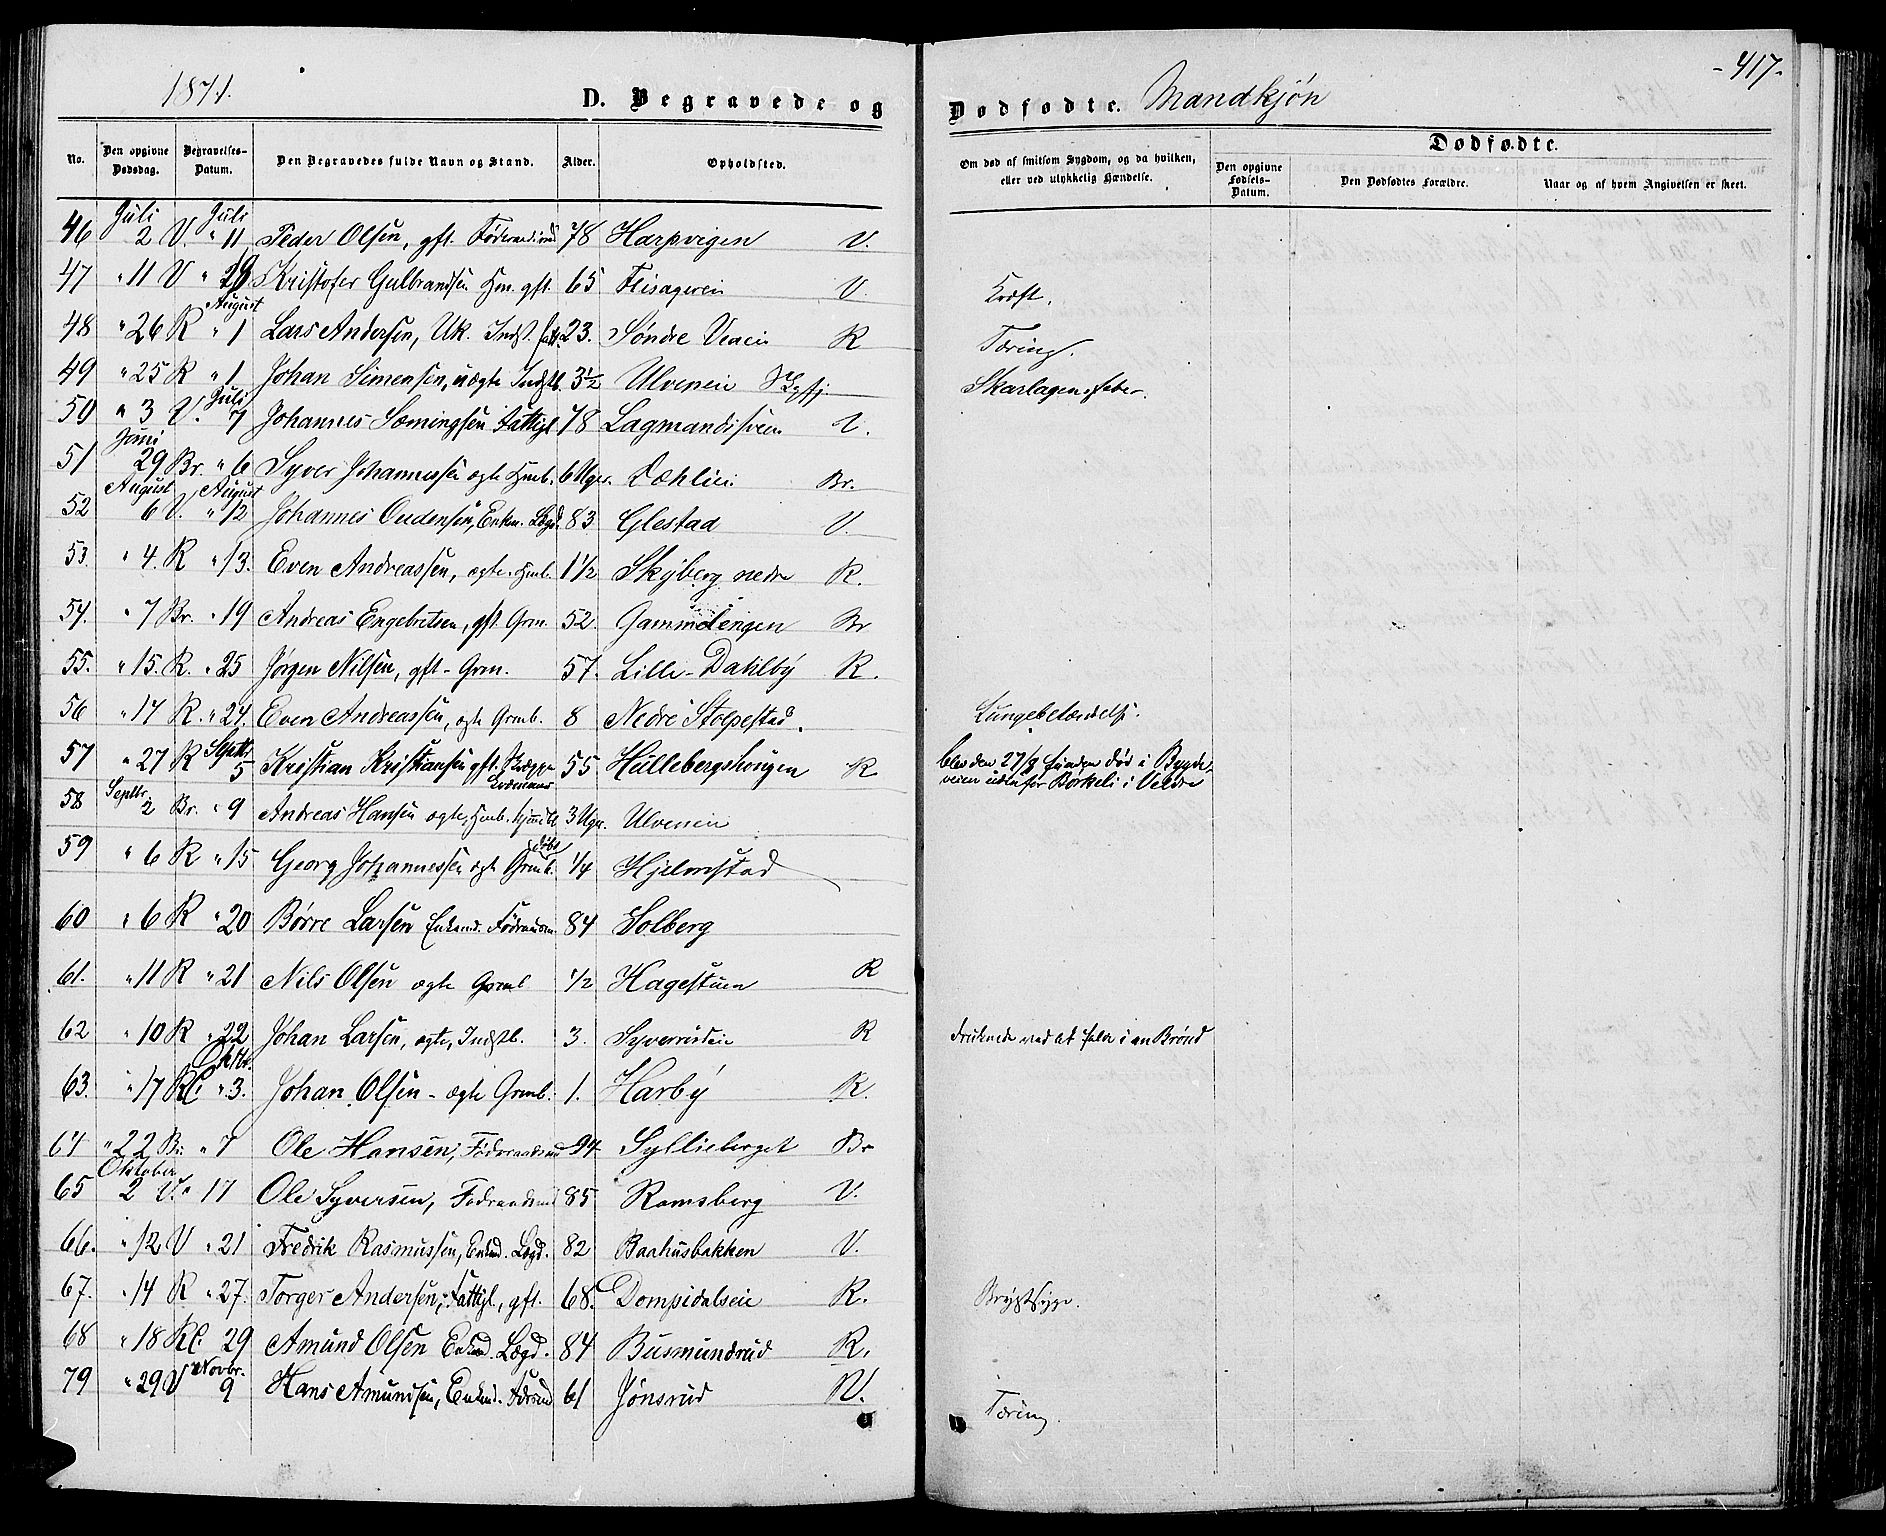 1871.
D. Begravede og
Dødfødte. Mandkjøn
-417-
No.
Den opgivne Dødsdag.
Begravelses-Datum.
Den Begravedes fulde Navn og Stand.
Alder.
Opholdsted.
Om død af smitsom Sygdom, og da hvilken, eller ved ulykkelig Hændelse.
Dødfødte.
Den opgivne Fødsels-Datum.
Den Dødfødtes Forældre.
Naar og af hvem Angivelsen er skeet.
Juli Juli
46 2 V. " 11 Peder Olsen, gft. 78 Harpvigen V.
47 " 11 V " Kristofer Gulbrandsen Hm. gft. 65 V. Kræft.
August
48 " 26 R " 1 Lars Andersen, Uk. Indst. 23. Søndre Veen R Tæring.
49 " 25 R " 1 Johan Simensen, uægte Indstb. 3½ Ulveneie Skarlagensfeber.
Juli
50 " 3 V. 7 Johannes Sæmingsen Fattigl. 78 V.
Juni
51 29 Br. " 6 Syver Johannessen ægte Hmb. 6 Uger. Dæhlien Br.
August August
52 6 V. " 12 Johannes Oudensen, Enkm. Lægd. 83 Glestad V.
53. " 4. R " 13. Even Andreassen, ægte Hmb. 1½ Skyberg nedre R.
54. " 7 Br. " 19 Andreas Engebretsen, gft. Grm. 52. Gammelengen Br
55. " 15. R. " 25 Jørgen Nilsen, gft. Grm. 57. Lille-Dahlby R.
56 " 17 R. " 24. Even Andreassen, ægte Grmb. 8 Nedre Stolpestad. Lungebetændelse.
Septbr.
57 " 27 R 5 Kristian Kristiansen gft. 55 Hullebergshougen R blev den 27/8 funden død i Bygde-
veien udenfor Borkeli i Veldre
Septbr.
58 2 Br. " 9 Andreas Hansen ægte, Hmb. hjmdbt. 3 Uger. Ulveneie
59 " 6 R " 15 Georg Johannessen ægte Grmb. 1/4 Hjelmstad
60 " 6 R " 20 Børre Larsen Enkemd. Føderaadsm. 84 Solberg
61. " 11 R " 21 Nils Olsen ægte Grmb 1/2 Hagestuen R
62 " 10 R " 22 Johan Larsen, ægte, Indstb. 3. Syverrudeie R druknede ved at falde i en Brønd
Oktbr.
63. " 17 R " 3. Johan Olsen - ægte Grmb. 1. Harby R.
64 " 22 Br. " 7 Ole Hansen, Føderaadsmd 94 Syllieberget Br
Oktober
65 2 V. " 17 Ole Syversen, Føderaadsmd 85 Ramsberg V.
66. " 12 V " 21 Fredrik Rasmussen, Enkmd. Lægd. 82 Baahusbakken V.
67. " 14 R " 27. Torger Andersen, Fattigl., gft. 68. Dompidalseie R. Brystsyge.
68 " 18 R. 29 Amund Olsen Enkmd. Lægd. 84 Busmundrud R.
Novbr.
79 " 29 V 9 Hans Amundsen, Enkmd. 61 Jønsrud V. Tæring.